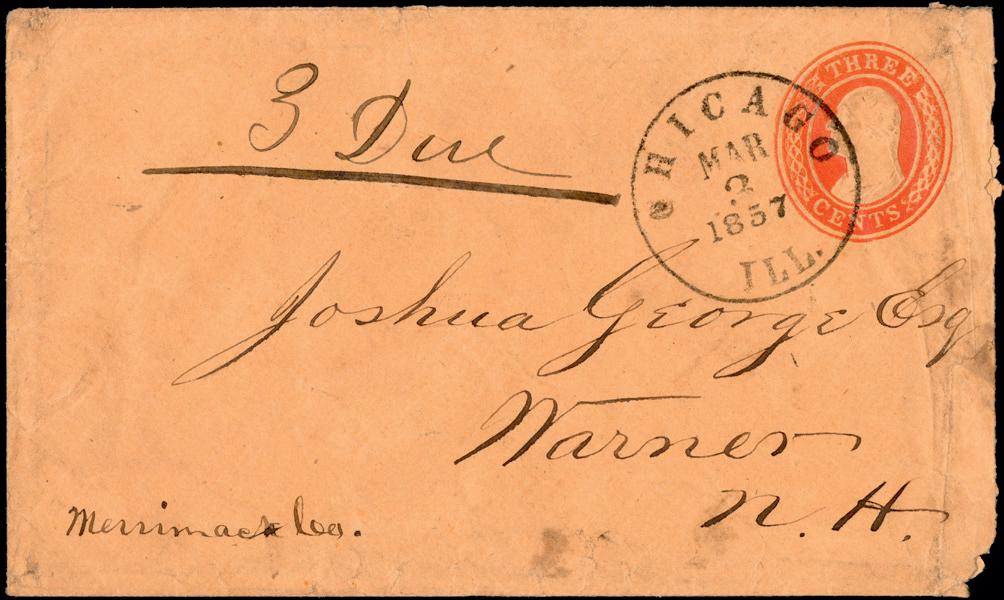 THREE
CENTS
CHICAGO
MAR
2
1857
ILL.
3 Due
Joshua George Esq
Warner
N. H.
Merrimack Co.